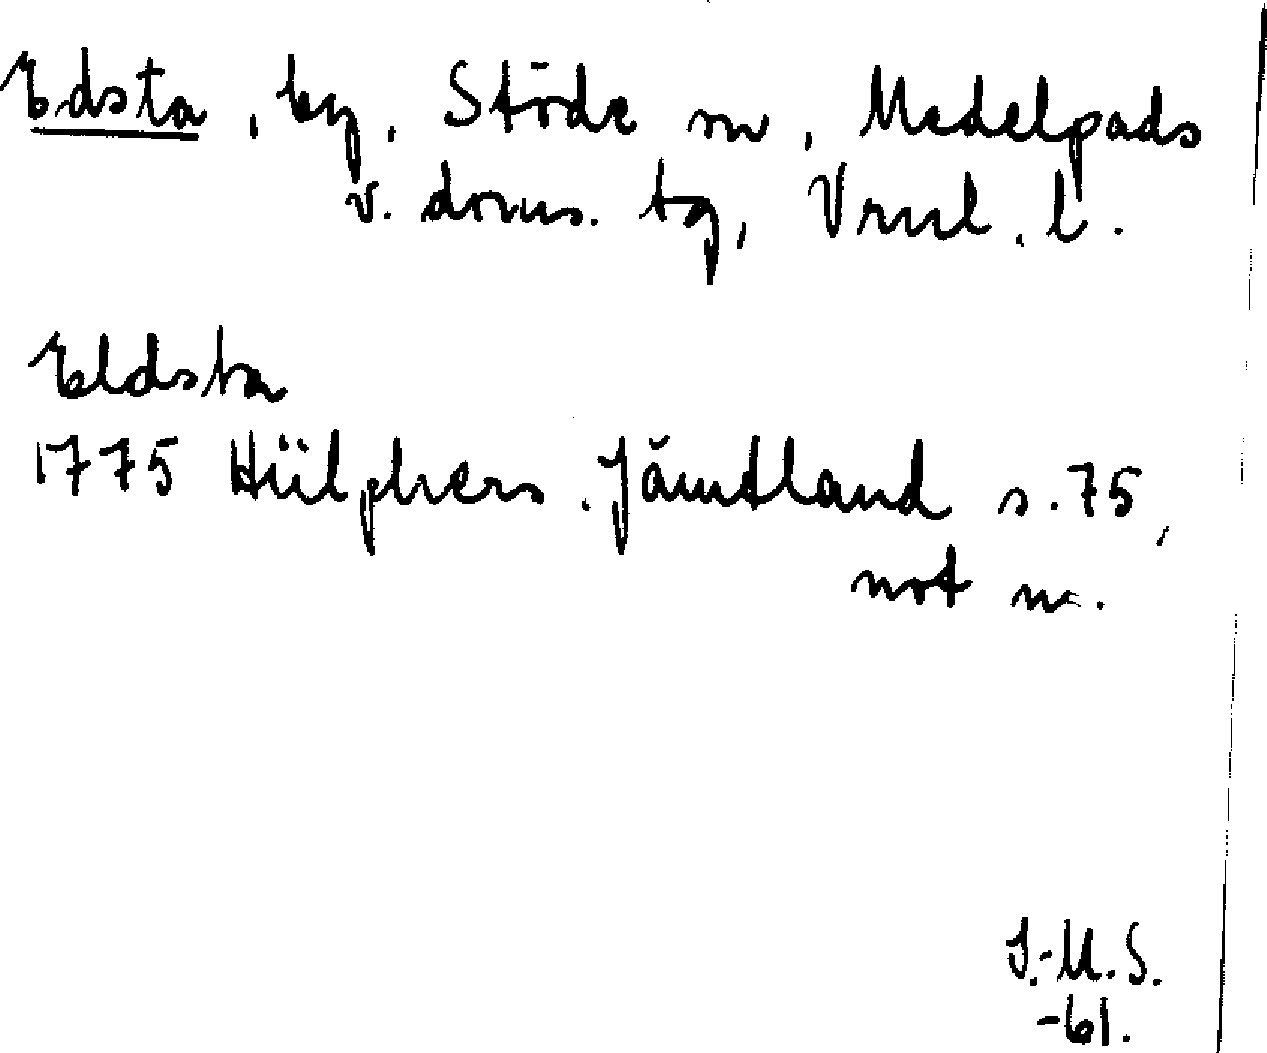 Edsta, by, Stöde sn, Medelpads
v. doms. tg, Vrnl. l.
Eldsta
1775 Hülphers. Jämtland s. 75,
not m.
J.-M.S.
-61.